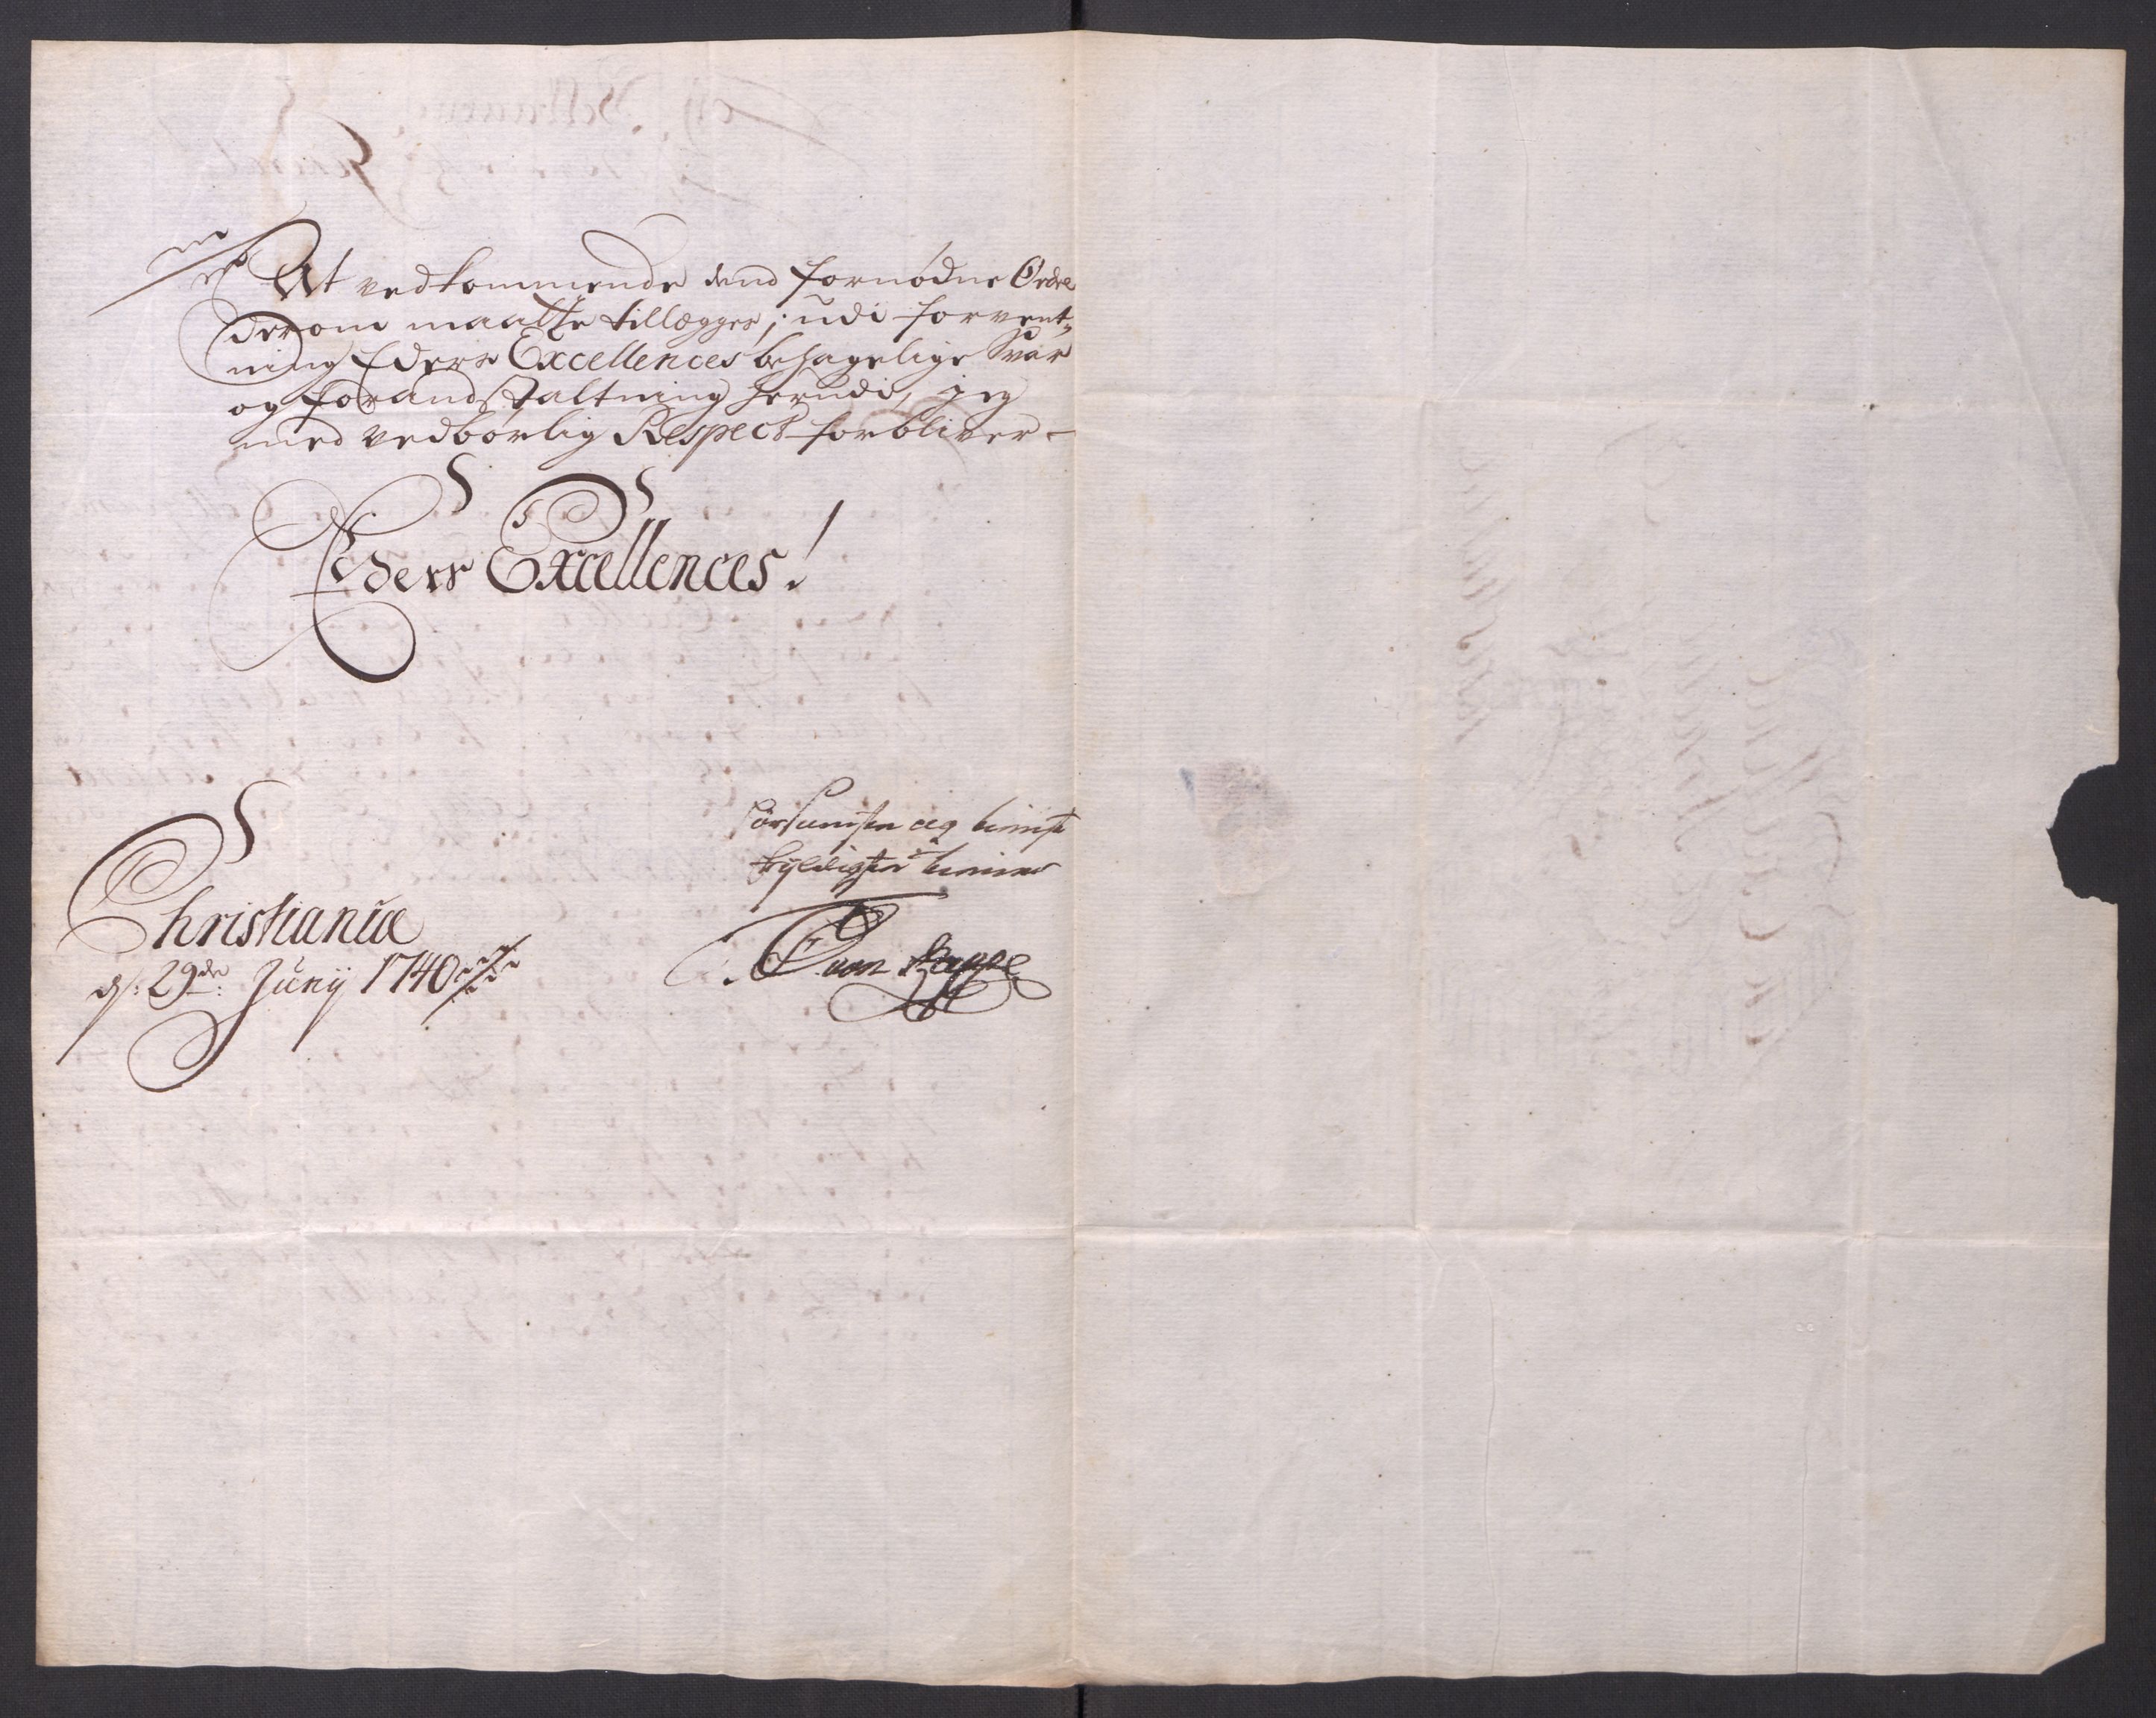 At vedkommende dend fornødne Ordre
derom maatte tillegges; udi forvent-
ning Eders Excellences behagelige Svar
og foranstaltning herudi, jeg
med vedbørlig Respect forbliver -
Eders Excellences!
hørsamste og tienst
skyldigste tiener
von Rappe
Christiania
d: 29de: Junÿ 1740